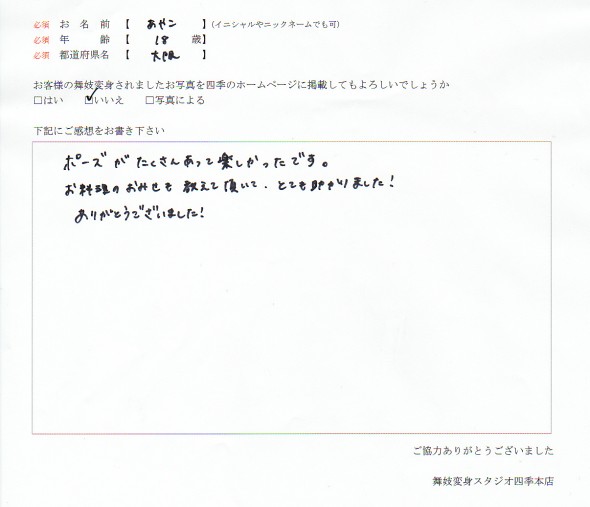 必須 お名前 【 あやこ 】(イニシャルやニックネームでも可)
必須 年齢 【 18 歳】
必須 都道府県名 【 大阪 】
お客様の舞妓変身されましたお写真を四季のホームページに掲載してもよろしいでしょうか
□はい ☑いいえ □写真による
下記にご感想をお書き下さい
ポーズがたくさんあって楽しかったです。
お料理のおみせも教えて頂いて、とても助かりました!
ありがとうございました!
ご協力ありがとうございました
舞妓変身スタジオ四季本店